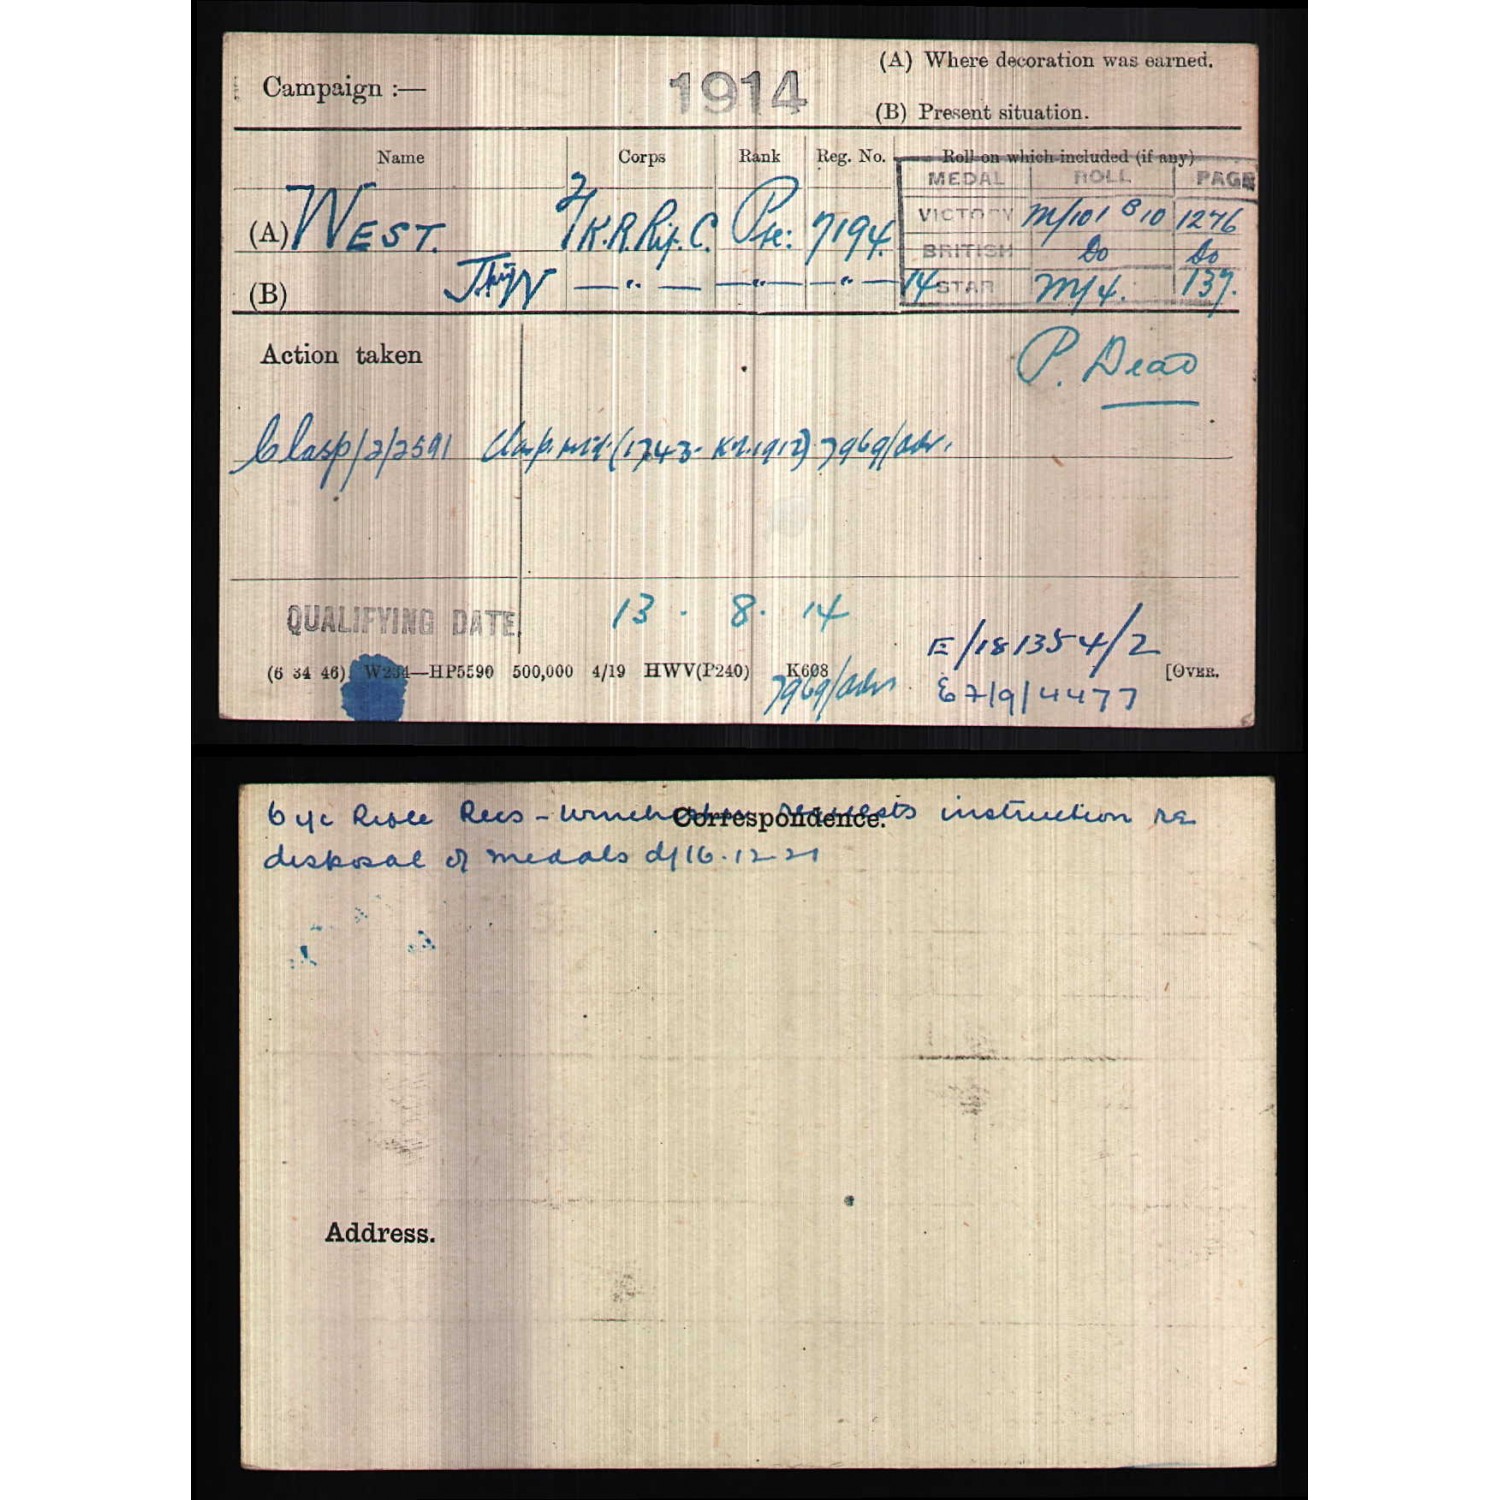 Campaign :—
1914
(A) Where decoration was earned.
(B) Present situation.
Name Corps Rank Reg. No. Roll on which included (if any)
MEDAL ROLL PAGE
(A) WEST. 2/K.R.Rif.C. Pte: 7194. VICTORY M/101 B10 1276
BRITISH Do Do
(B) —"— —"— —"— 14 STAR M/4. 137.
Action taken
P. Dead
Clasp/2/2591 7969/Adv.
QUALIFYING DATE. 13 . 8 . 14
E/181354/2
(6 34 46) W234—HP5590 500,000 4/19 HWV(P240) K608 [OVER.
7969/Adv E7/9/4477
Correspondence.
O i/c Rifle Recs - Winchester requests instruction re
disposal of medals d/16.12.21
Address.